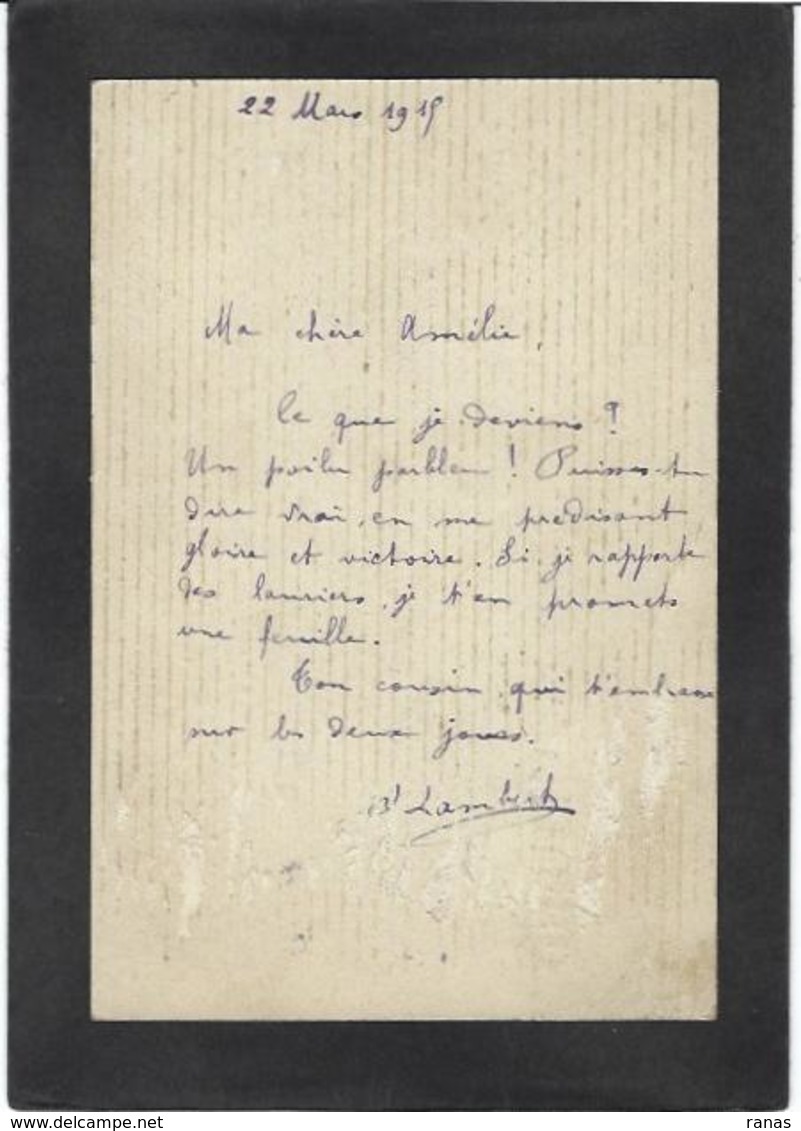 22 Mars 1915
Ma chère Amélie,
Ce que je deviens ?
Un poilu parbleu ! Puisses-tu
dire vrai, en me prédisant
gloire et victoire. Si je rapporte
des lauriers, je t'en promets
une feuille.
Ton cousin qui t'embrasse
sur les deux joues.
Bt Lambert
ranas
www.delcampe.net